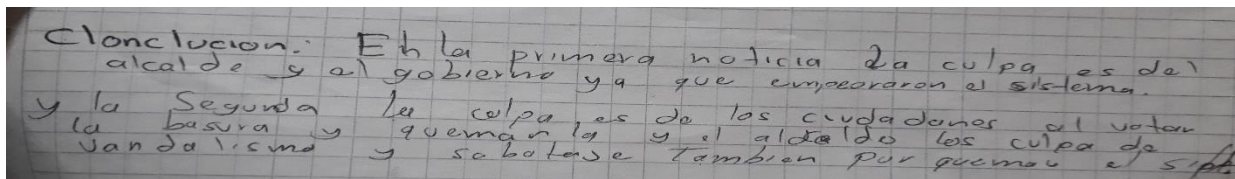 Conclucion: En la primera noticia La culpa es del
alcalde y al gobierno ya que empeoraron el sistema.
y la Segunda la culpa es de los ciudadanos al votar
la basura y quemarla y el alcalde los culpa de
vandalismo y sabotaje tambien por quemar el